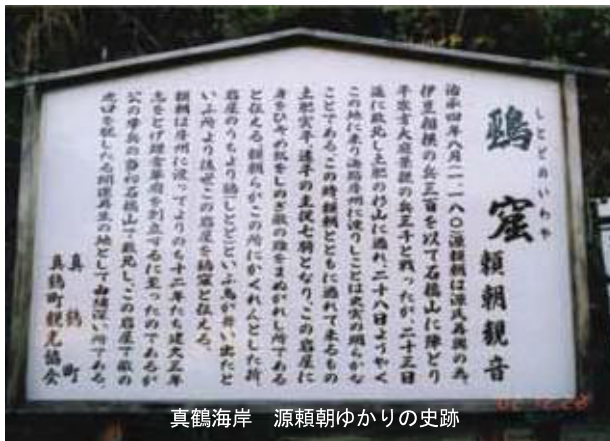 しとどのいわや
鵐窟 頼朝観音
治承四年八月(一一八〇)源頼朝は源氏再興の為、
伊豆相模の兵三百を以て石橋山に陣どり
平家方大庭景親の兵三千と戦ったが、二十三日
遂に敗北し土肥の杉山に逃れ、二十八日ようやく
この地に来り海路房州に渡りしことは史実の明らかな
ことである。この時頼朝とともに逃れて来るもの
土肥実平、遠平の主従七騎となり、この岩屋に
身をひそめ飢をしのぎ敵の難をまぬかれし所である
と伝える。頼朝らがこの所にかくれんとした折、
岩屋のうちより鵐(しとど)といふ鳥が舞い出たと
いふ所より後世この岩屋を鵐窟と伝える。
頼朝は房州に渡ってよりのち十二年たち建久三年
志をとげ鎌倉幕府を創立するに至ったのであるが
公の挙兵の砌り石橋山で敗北し、この岩屋で敵の
虎口を脱したる開運再生の地として由緒深い所である。
真鶴町
真鶴町観光協会
02 12 28
真鶴海岸 源頼朝ゆかりの史跡